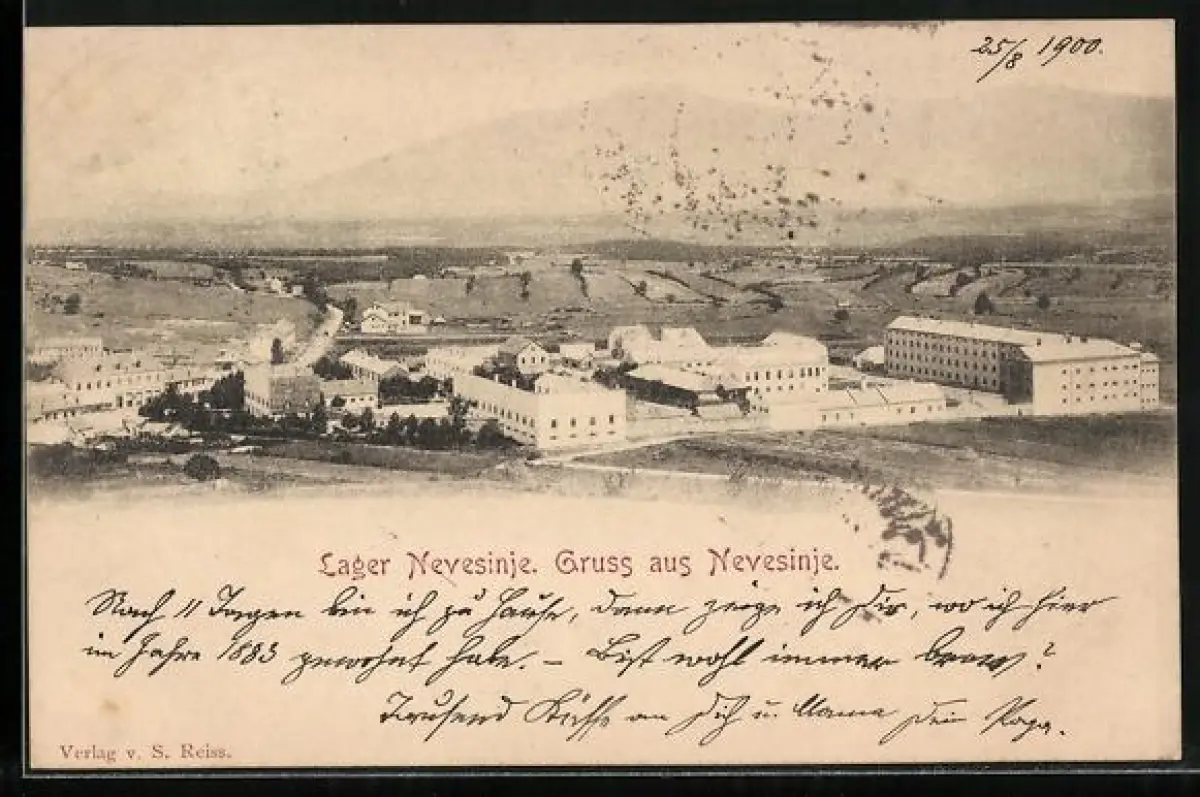 25/8 1900.
Lager Nevesinje. Gruss aus Nevesinje.
Nach 11 Tagen bin ich zu Hause, dann zeige ich Dir, wo ich hier
im Jahre 1883 gewohnt habe. – Bist wohl immer brav?
Tausend Küsse an Dich u. Mama Dein Papa.
Verlag v. S. Reiss.